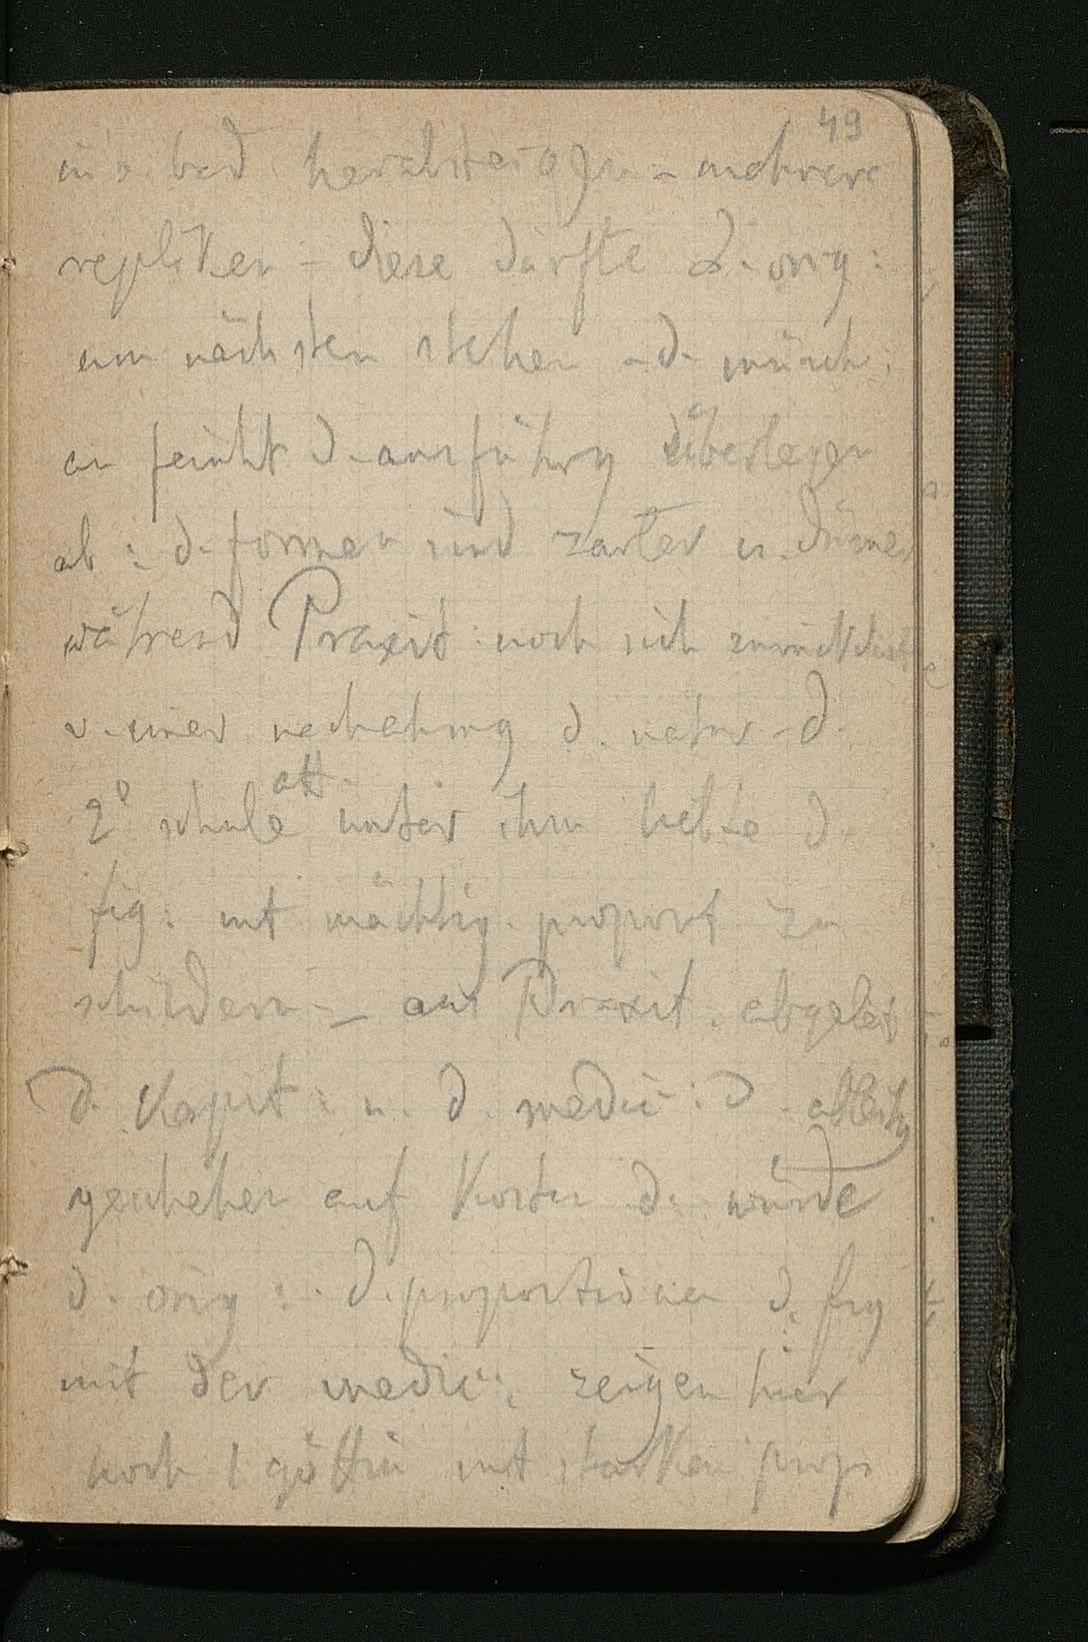 49
in's bad herabsteigen - mehrere
repliken - diese dürfte d. orig:
am nächsten stehen - d. münch.
an feinht d. ausführg überlegen
ab: d. formen sind zarter u. dünner
während Praxit: noch sich zurückhielt
v. einer nachahmung d. natur - d.
2° schule att. unter ihm liebte d.
fig: mit mächtig. proport zu
schildern - aus Praxit. abgeleit
d. Kapit: u. d. medic: d.
geschehen auf Kosten d. würde
d. orig: d. proportionen d. fig
mit der medic: zeigen hier
noch 1 göttin mit starken prop